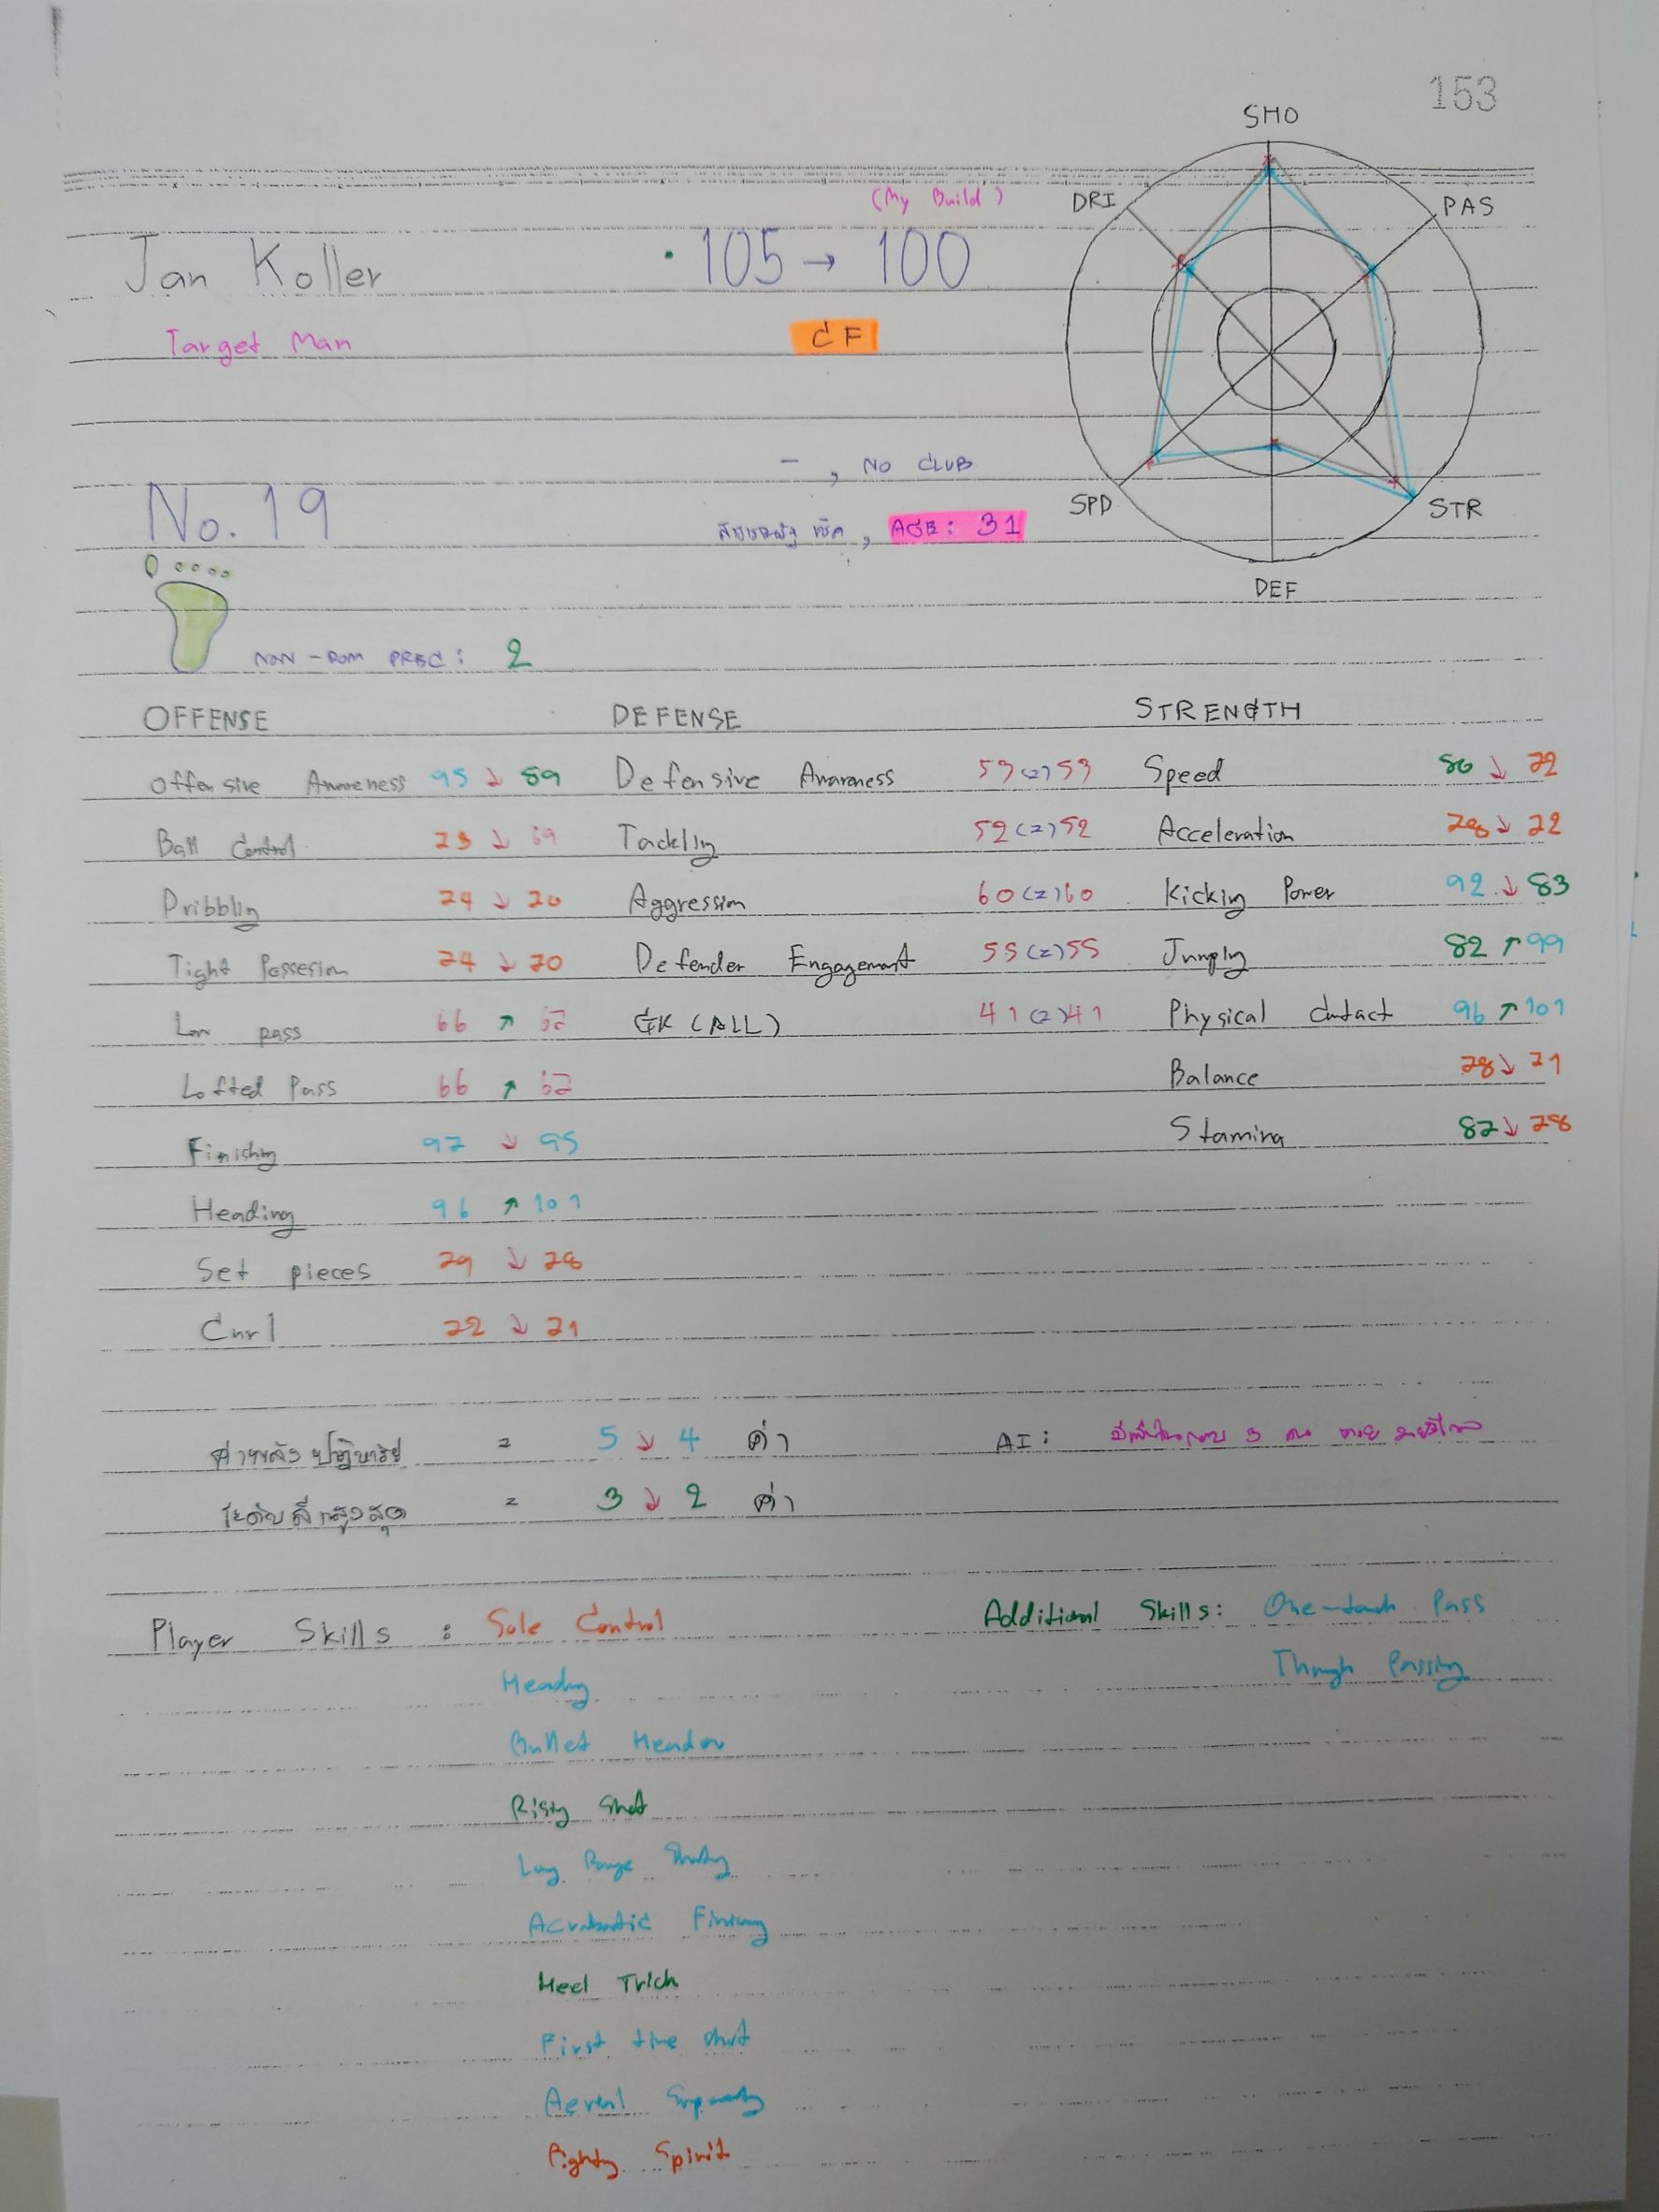 153
SHO
DRI
PAS
(My Build)
Jan Koller
105 → 100
Target Man
CF
- , NO CLUB
No. 19
เช็ค , AGE: 31
SPD
STR
DEF
NON-DOM PREC: 2
OFFENSE DEFENSE STRENGTH
Offensive Awareness 95 ↘ 89 Defensive Awareness 53 (=) 53 Speed 80 ↘ 72
Ball Control 73 ↘ 69 Tackling 52 (=) 52 Acceleration 78 ↘ 72
Dribbling 74 ↘ 70 Aggression 60 (=) 60 Kicking Power 92 ↘ 83
Tight Possesion 74 ↘ 70 Defender Engagement 55 (=) 55 Jumping 82 ↗ 99
Low pass 66 ↗ 67 GK (ALL) 41 (=) 41 Physical Contact 96 ↗ 101
Lofted Pass 66 ↗ 67 Balance 78 ↘ 71
Finishing 97 ↘ 95 Stamina 87 ↘ 78
Heading 96 ↗ 101
Set pieces 79 ↘ 78
Curl 72 ↘ 71
ค่าพลังปาฏิหาริย์ = 5 ↘ 4 ค่า AI:
ระดับสีสูงสุด = 3 ↘ 2 ค่า
Player Skills : Sole Control Additional Skills: One-touch Pass
Heading Through Passing
Bullet Header
Rising Shot
Long Range Shooting
Acrobatic Finishing
Heel Trick
First time shot
Aerial Superiority
Fighting Spirit